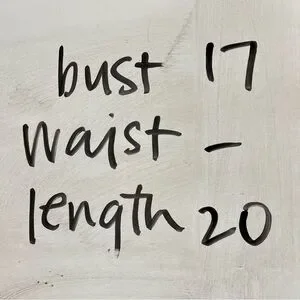 bust 17
waist -
length 20